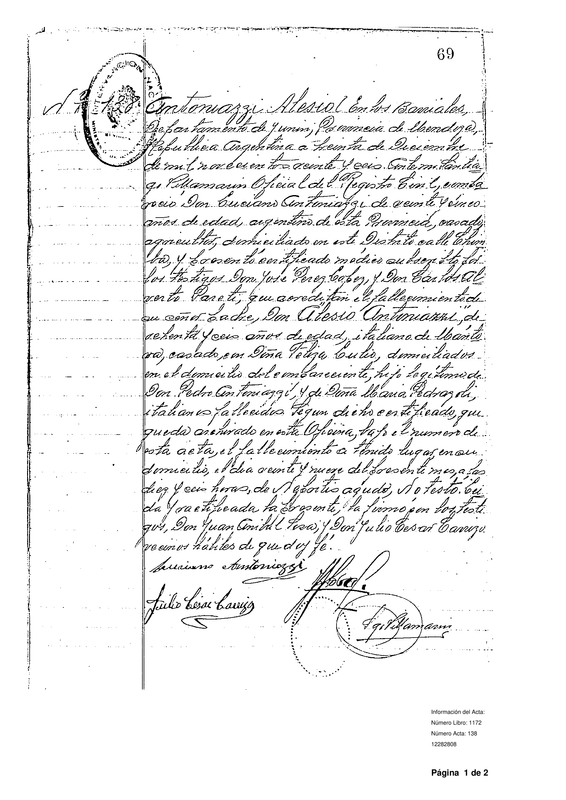 69
INTERVENCION NAC
Nº 138 Antoniazzi Alesio En los Barriales,
Departamento de Junin, Provincia de Mendoza,
Republica Argentina a treinta de Diciembre
de mil novecientos veinte y seis. Ante mi Santia
go Villamarin Oficial del Registro Civil, compa
reció Don Luciano Antoniazzi de veinte y cinco
años de edad, argentino de esta Provincia, casado,
agricultor, domiciliado en este Distrito calle Chim
ba, y presento certificado medico subscripto por
los testigos Don José Perez Lopez, y Don Carlos Al
verto Pareti, que acreditan el fallecimiento de
su señor Padre, Don Alesio Antoniazzi, de
ochenta y seis años de edad, italiano de Mánto
va, casado, con Doña Teliza Culio, domiciliados
en el domicilio del compareciente, hijo legitimo de
Don Pedro Antoniazzi, y de Doña Maria Pedrazoli,
italianos fallecidos. Segun dicho certificado, que
queda archivado en esta Oficina, bajo el numero de
esta acta, el fallecimiento a tenido lugar en su
domicilio, el dia veinte y nueve del presente mes, a las
diez y seis horas, de Nefritis agúda, No testó. Lei
da y ractificada la presente, la firmo con los testi
gos, Don Juan Anibal Sosa, y Don Julio Cesar Carrizo
vecinos hábiles de que doy fé.
Luciano Antoniazzi
Julio Cesar Carrizo
Sgo Villamarin
Información del Acta:
Número Libro: 1172
Número Acta: 138
12282808
Página 1 de 2